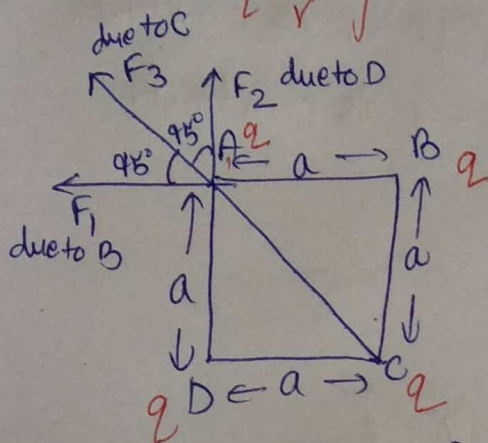 due to C
F3
F2 due to D
45°
45°
A q
← a → B q
F1
due to B
a
a
q D ← a → C q